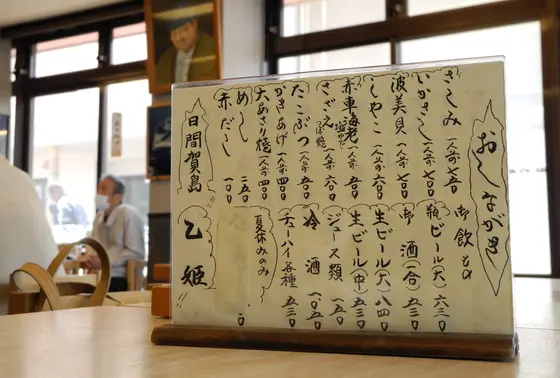 おしながき
さしみ 一人前 七五〇
いかさし 一人前 七〇〇
波美貝 一人前 七〇〇
しやこ 一人前 六〇〇
赤車海老 塩ゆで 一人前 五〇〇
さざえ つぼ焼 一人前 五〇〇
たこぶつ 一人前 五〇〇
かきあげ 一人前 四〇〇
大あさり焼 一人前 四〇〇
めし 二五〇
赤だし 一〇〇
日間賀島
お飲もの
瓶ビール(大) 六三〇
お酒(一合) 五三〇
生ビール(大) 八四〇
生ビール(中) 五三〇
ジュース類 一五〇
冷酒 一〇五〇
チューハイ各種 五三〇
夏休みのみ
乙姫